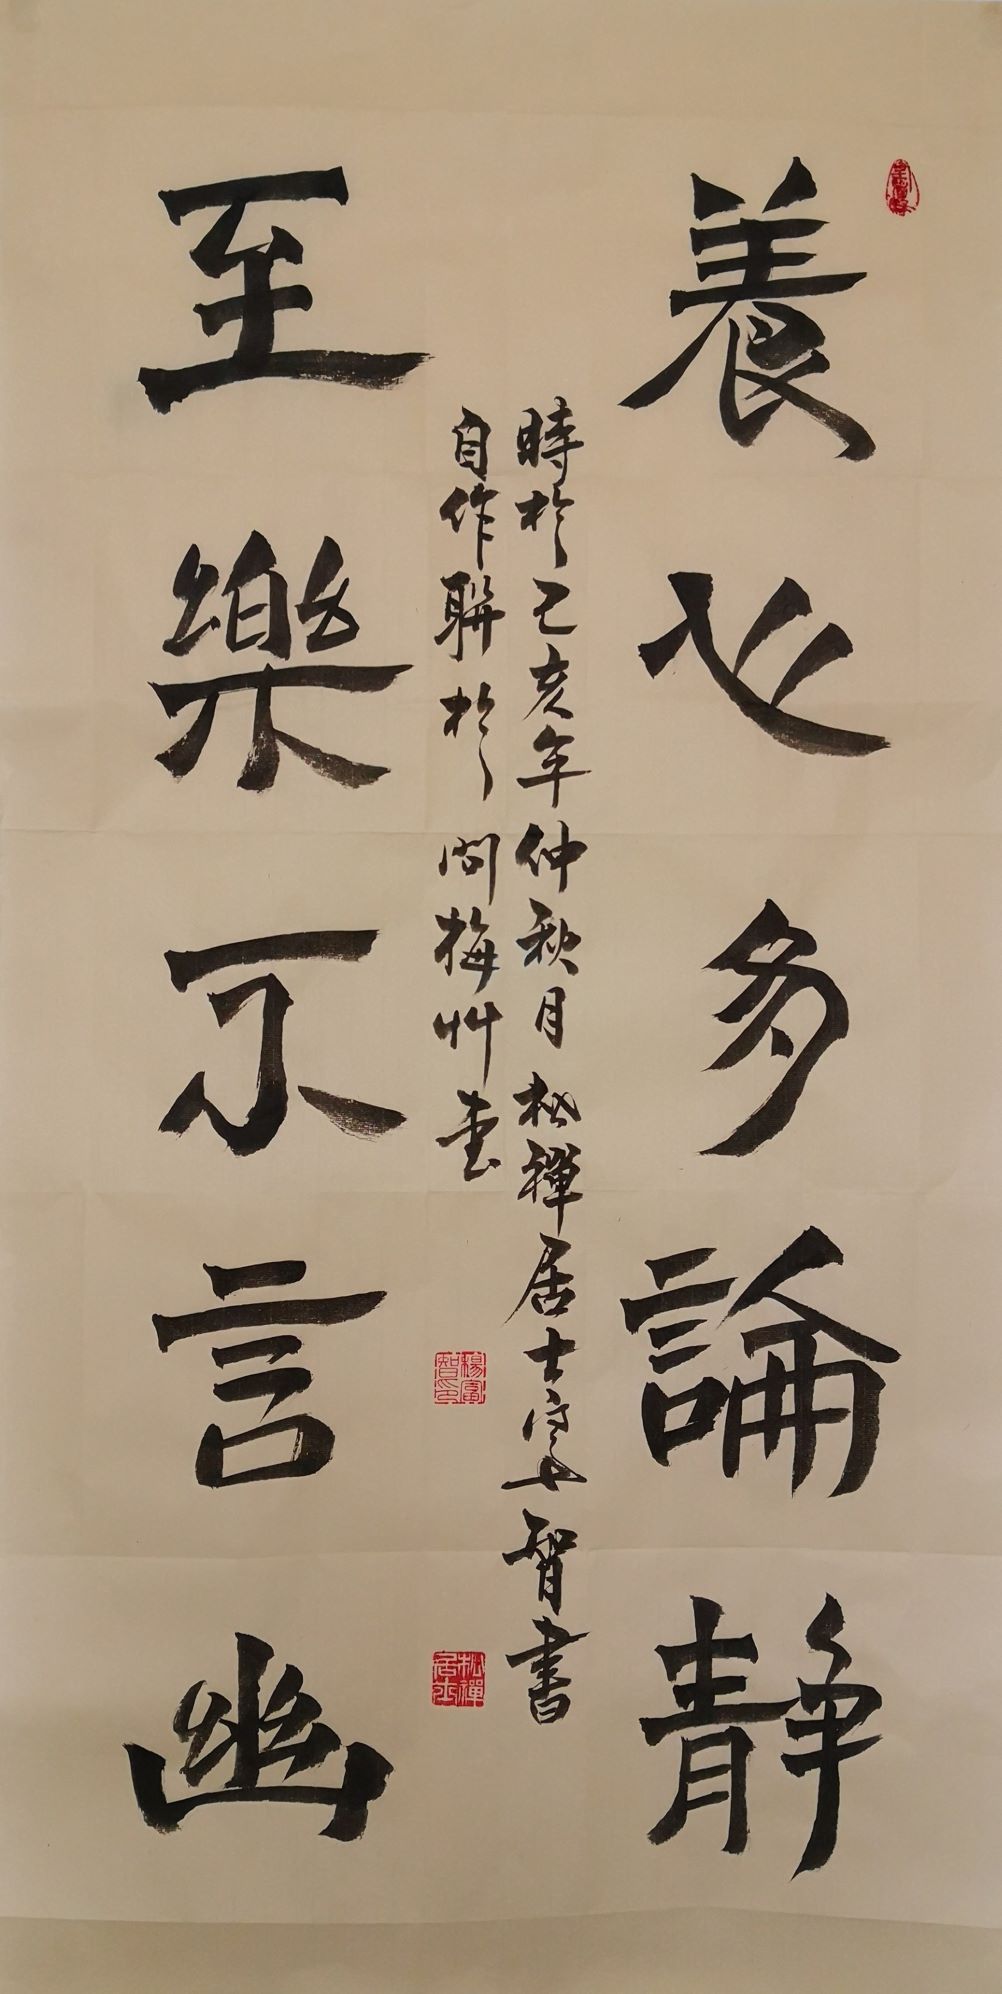 養心多論静
至樂不言幽
時於己亥年仲秋月松禪居士寅智書
自作聯於問梅艸堂
楊寅智印
松禪居士